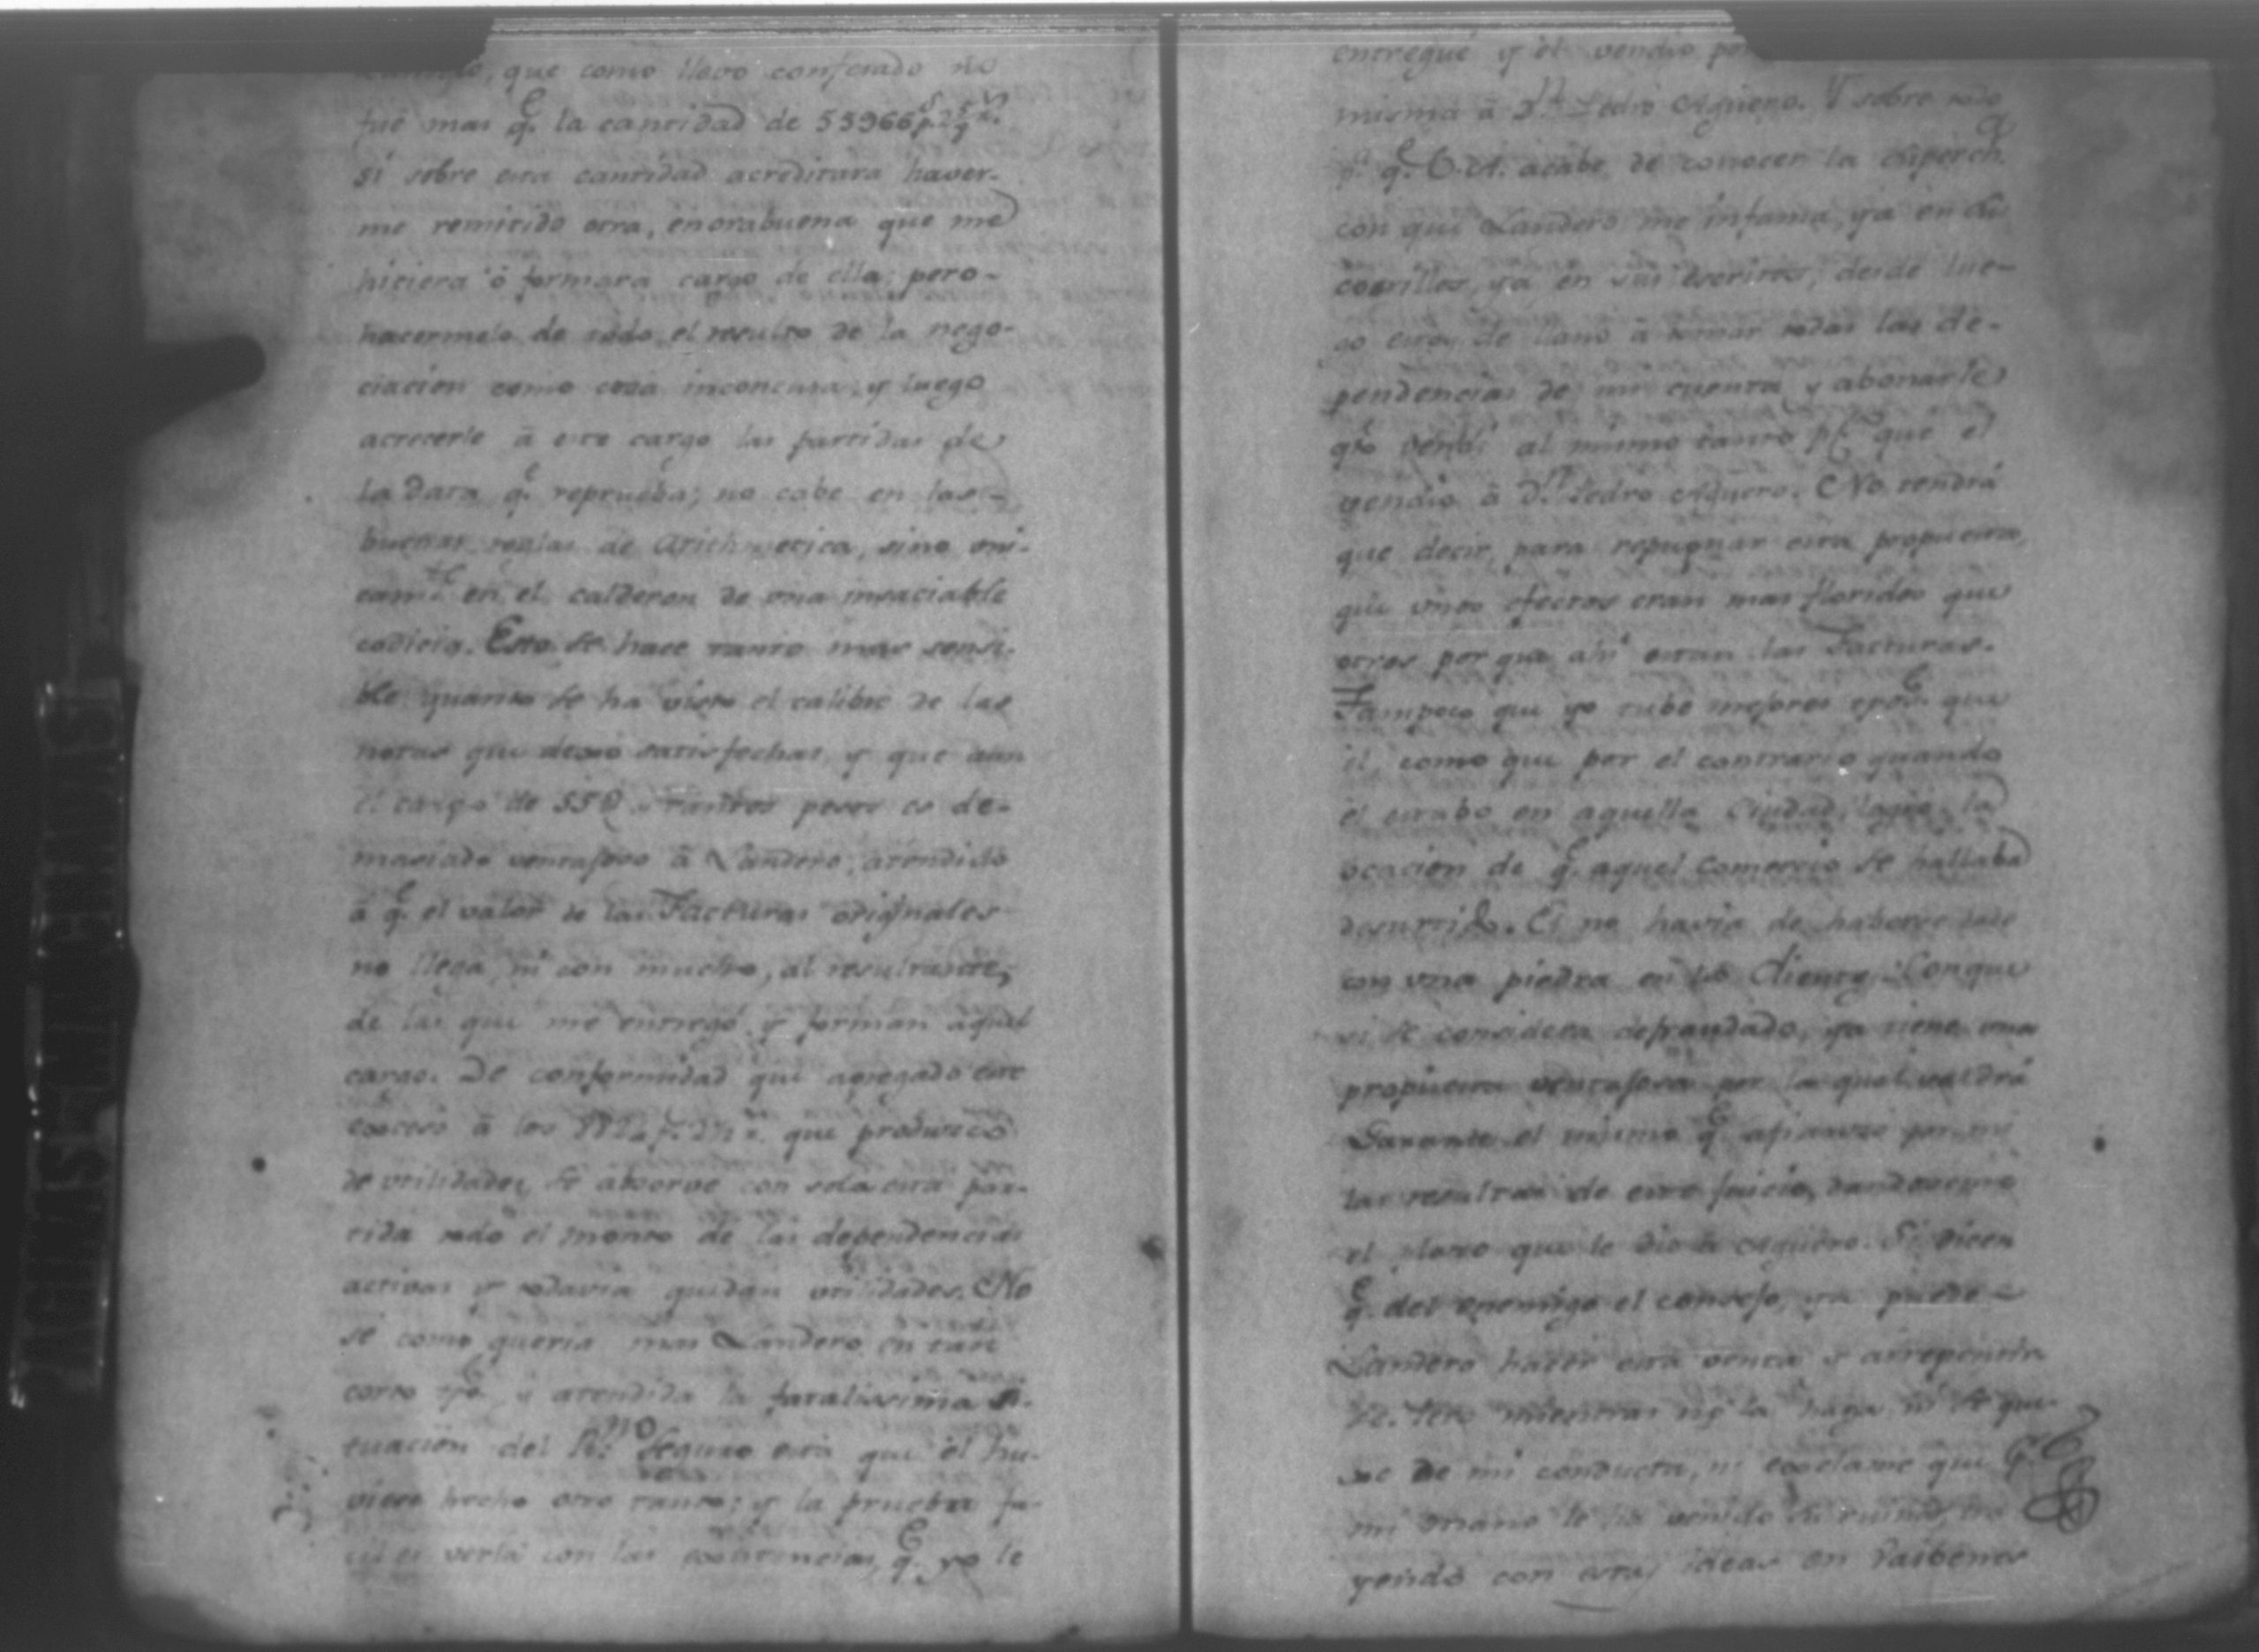 que como llevo confesado no
fué mas q.e la cantidad de 55966 p.s
si sobre esta cantidad acreditara haver-
me remitido otra, enorabuena que me
hiciera ó formara cargo de ella; pero-
hacermelo de todo el resulto de la nego-
ciacion como cosa inconcusa, y luego
acrecerle á este cargo las partidas de
la Data q.e reprueba; no cabe en las-
buenas reglas de Arithmetica, sino uni-
cam.te en el calderon de una insaciable
codicia. Esto se hace tanto mas sensi-
ble quanto se ha visto el calibre de las
notas que dexó satisfechas, y que aun
el cargo de 55 tantos pesos es de-
maciado ventajoso á Landero, atendido
á q.e el valor de las Facturas originales
no llega, ni con mucho, al resultante,
de las que me entregó y forman aquel
cargo. De conformidad que agregado este
exceso á los que produxeron
de utilidades, se absorve con sola esta par-
tida todo el monto de las dependencias
activas y todavia quedan utilidades. No
sé como queria mas Landero en tan
corto tpo. y atendida la fatalissima si-
tuacion del R.no Seguro está que él hu-
viera hecho otro tanto; y la prueba fa-
cil es verla con las existencias, q.e yo le
entregué y él vendio
misma á D.n Pedro Aguero. Y sobre todo
p.a q.e V.A. acabe de conocer la
con que Landero me infama, ya en
corrillos, ya en sus escritos, desde lue-
go estoy de llano á tomar todas las de-
pendencias de mi cuenta y abonarle
al mismo tanto p% que él
vendió á D.n Pedro Aguero. No tendrá
que decir, para repugnar esta propuesta,
que unos efectos eran mas floridos que
otros por que ahi estan las Facturas.
Tampoco que yo tube mejores que
él, como que por el contrario quando
él estubo en aquella Ciudad, logró la
ocacion de q.e aquel Comercio se hallaba
desurtido. El no havia de haberse dado
con una piedra en los Dientes. Conque
si se considera defraudado, ya tiene una
propuesta ventajosa por la qual saldrá
Garante el mismo q.e afianzó por mi
las resultas de este juicio, dandoseme
el plazo que le dio á Aguero. Si dicen
q.e del enemigo el consejo, ya puede-
Landero hacer esta venta y arrepentir-
se. Pero mientras no la haga ni se que-
xe de mi conducta, ni exclame que p.r
mi mano le ha venido su ruina,
yendo con estas ideas en